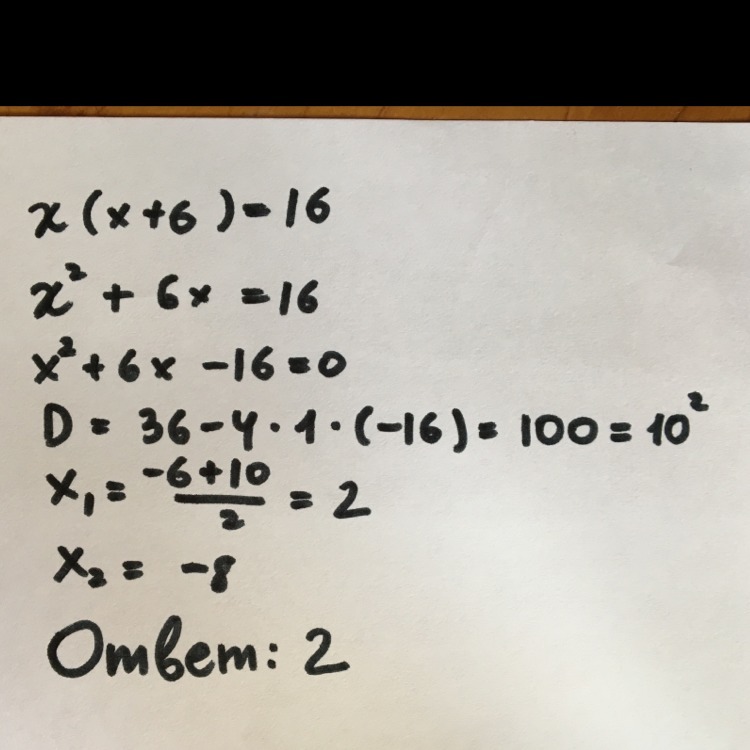 x(x+6)=16
x² + 6x = 16
x² + 6x - 16 = 0
D = 36 - 4 · 1 · (-16) = 100 = 10²
x₁ = (-6+10)/2 = 2
x₂ = -8
Ответ: 2